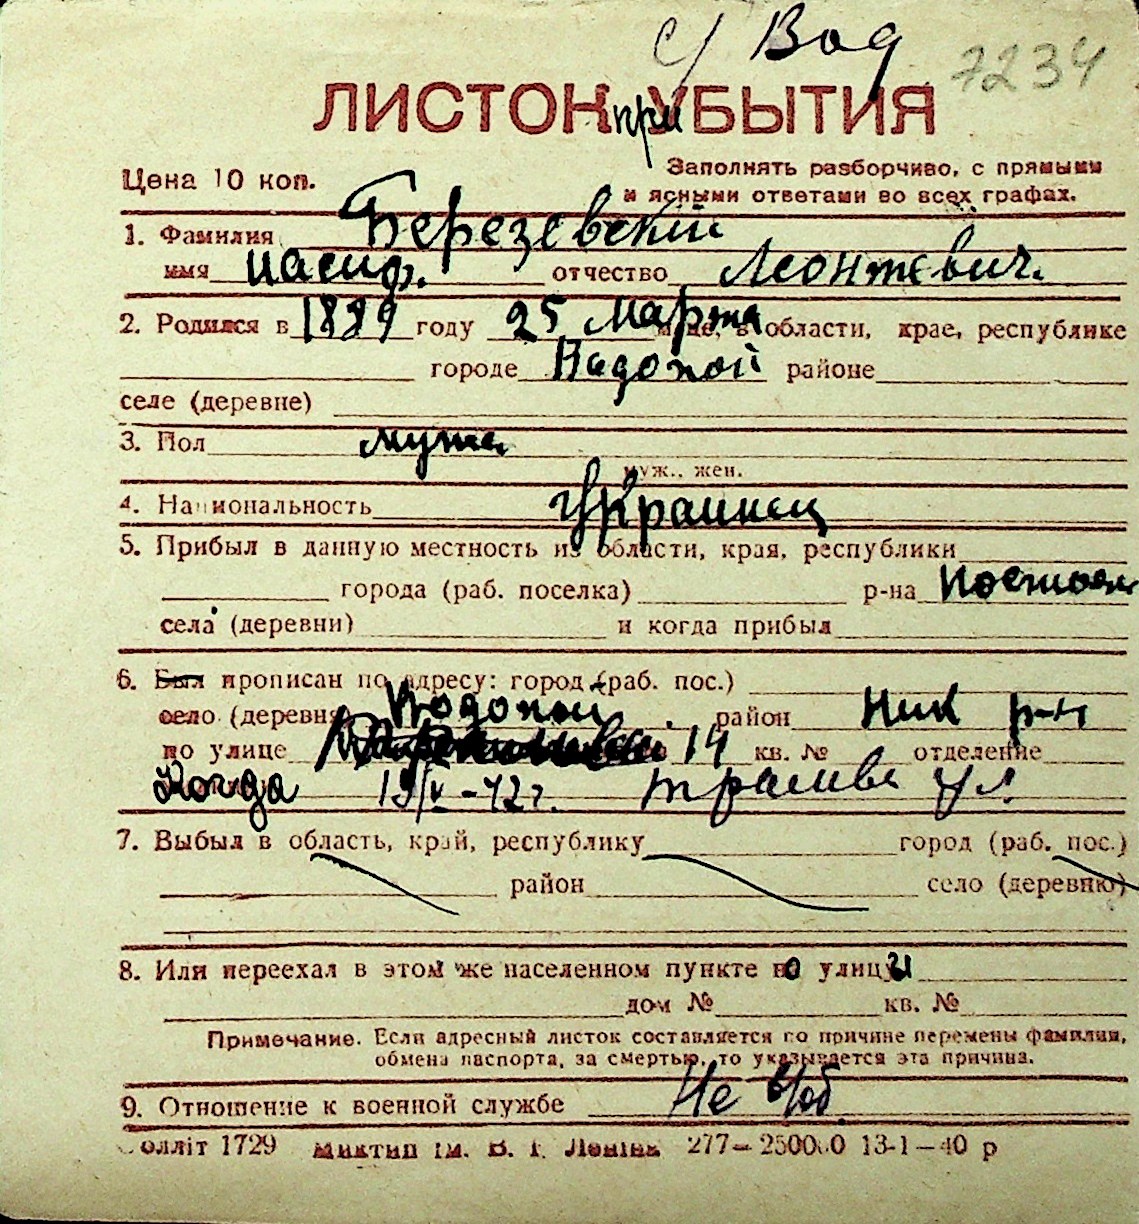 с/ Вод 7234
ЛИСТОК УБЫТИЯ
при
Цена 10 коп.
Заполнять разборчиво, с прямыми
и ясными ответами во всех графах.
1. Фамилия Березевский
имя Иасиф. отчество Леонтевич.
2. Родился в 1889 году 25 Марта м-це, в области, крае, республике
городе Вадопой районе
селе (деревне)
3. Пол мужс
муж., жен.
4. Национальность Украинец
5. Прибыл в данную местность из области, края, республики
города (раб. поселка) р-на
села (деревни) и когда прибыл
6. Был прописан по адресу: город (раб. пос.)
село (деревня Водопой район Ник р-н
по улице 14 кв. № отделение
Когда 19/V-42 г. ул
7. Выбыл в область, край, республику город (раб. пос.)
район село (деревню)
8. Или переехал в этом же населенном пункте на улицу
дом № кв. №
Примечание. Если адресный листок составляется по причине перемены фамилии,
обмена паспорта, за смертью, то указывается эта причина.
9. Отношение к военной службе Не в/об
олліт 1729 Миктип ім. В. І. Леніна 277—250000 13-1—40 р